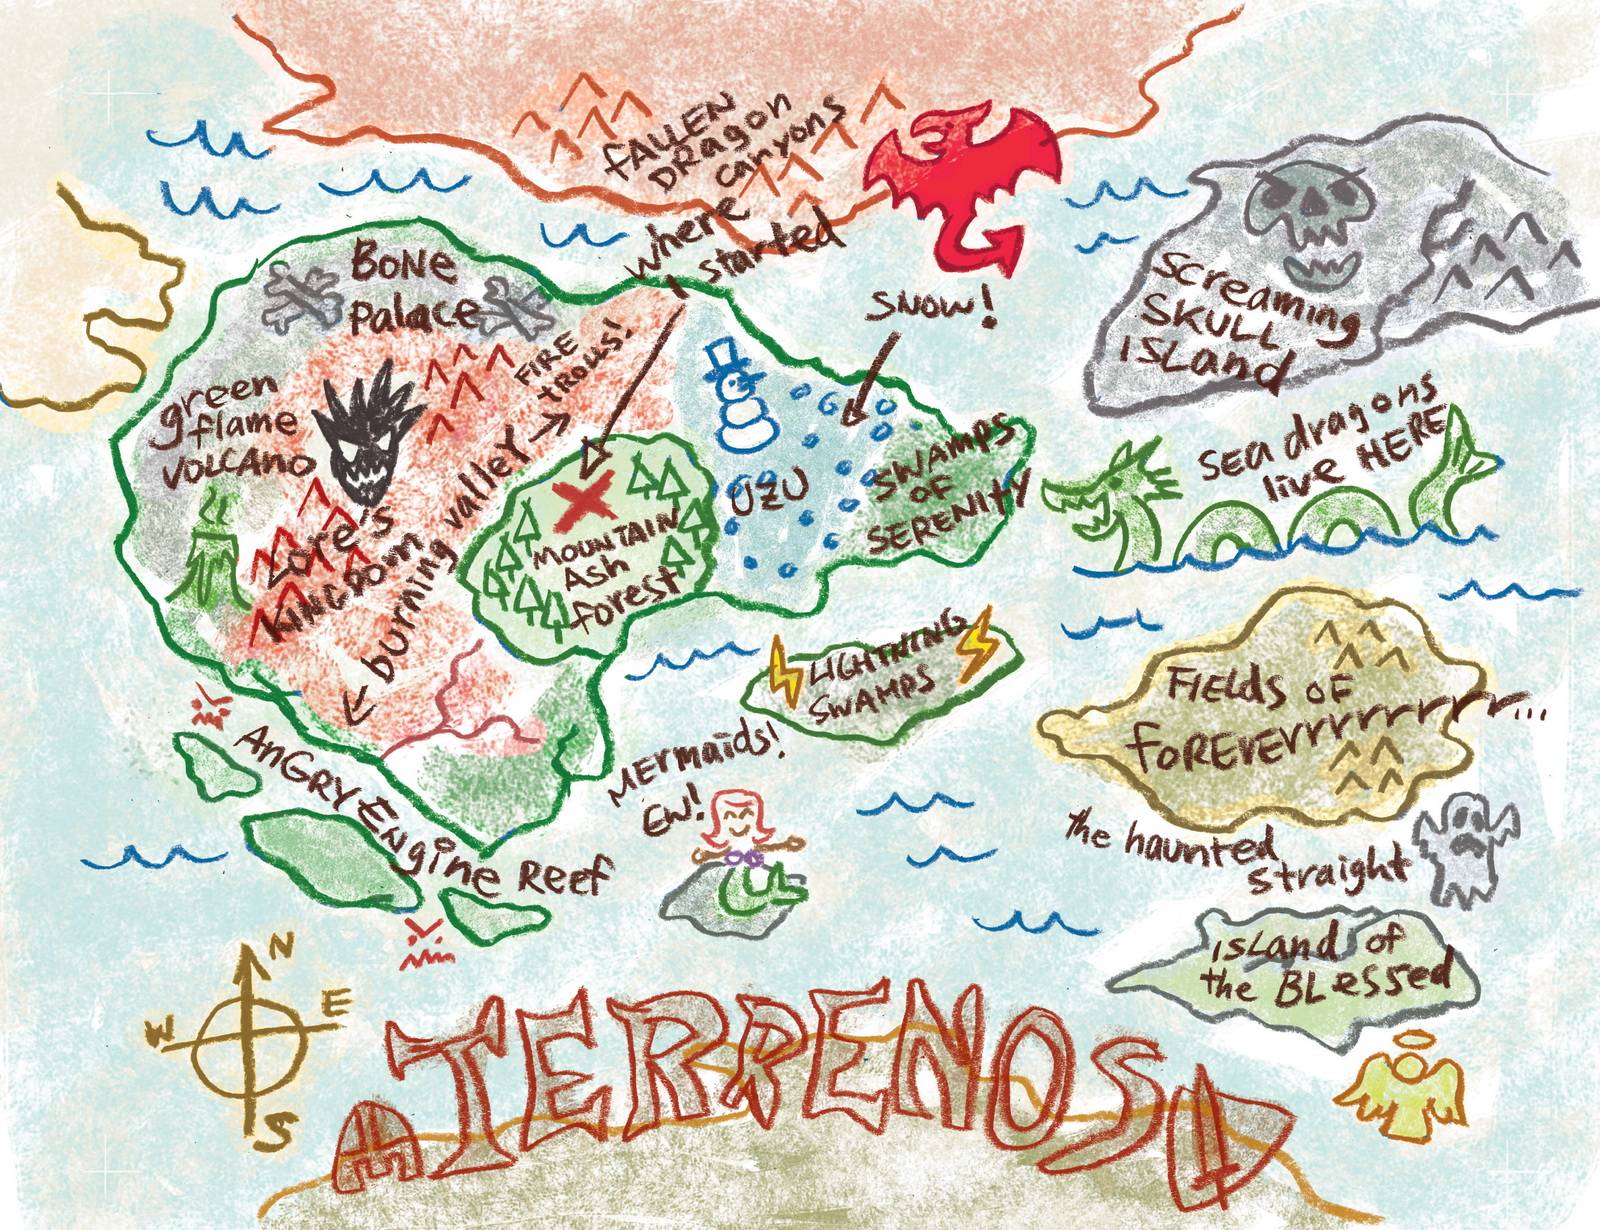 FALLEN
DRagon
canyons
where
I started
BONE
Palace
SNOW!
Screaming
SKULL
ISLand
FIRE
tROLLS!
green
flame
VOLCANO
SEa dragons
live HERE
burning valley
UZU
SWAMPS
OF
SERENITY
Lore's
KINGDOM
MOUNTAIN
ASh
forest
LIGHTNING
SWAMPS
FIELds OF
FOREVERrrrrrrrrr...
ANGRY ENgine REEf
MERmaids!
EW!
the haunted
straight
ISLand of
the BLessed
N
W E
S
TERRENOS